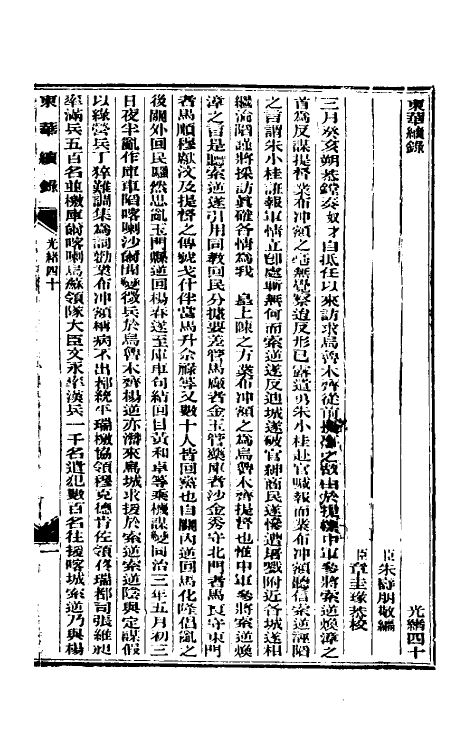 東華續錄
光緒四十
臣朱壽朋敬編
臣章圭瑑恭校
三月癸亥朔恭鏜奏奴才自抵任以來訪求烏魯木齊從前之故由於提標中軍參將索逆煥章之
首為反謀提督業布冲額之毫無覺察迨反形已露遣勇朱小桂赴官喊報而業布冲額聽信索逆誣陷
之言謂朱小桂誑報軍情立卽處斬無何而索逆遂反迪城遂破官紳商民遂慘遭屠戮附近各城遂相
繼淪陷謹將採訪眞確各情為我 皇上陳之方業布冲額之為烏魯木齊提督也惟中軍參將索逆煥
漳之言是聽索逆遂引用同教回民分據要差管馬廠者金玉管藥庫者沙金秀守北門者馬良守東門
者馬順穆獻汶及提督之傳號戈什伴當馬升佘祿等又數十人皆回黨也自關內逆回馬化隆倡亂之
後關外回民騷然思亂玉門縣逆回楊春遂至庫車句結回目黃和卓等乘機謀變同治三年五月初三
日夜半亂作庫車陷喀喇沙爾聞變徵兵於烏魯木齊楊逆亦潛來烏城求援於索逆索逆陰與定謀假
以綠營兵丁猝難調集為詞勃業布冲額稱病不出都統平瑞檄協領穆克德肯佐領佟瑞都司張維禎
率滿兵五百名並檄庫爾喀喇烏蘇領隊大臣文永率漢兵一千名遣犯數百名往援喀城索逆乃與楊
東華續錄
光緒四十
一